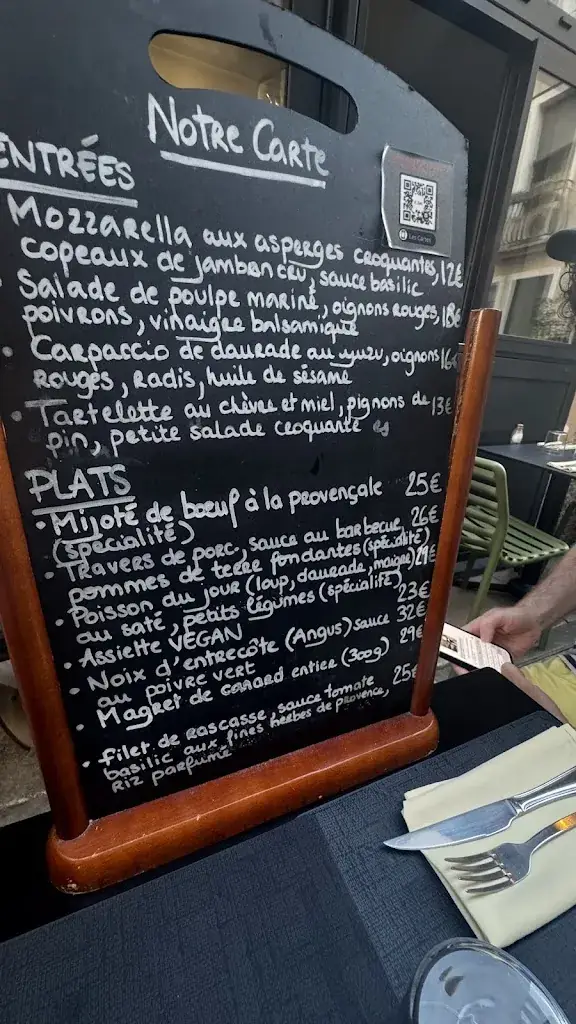 Notre Carte
ENTRÉES
Mozzarella aux asperges croquantes, 12€
copeaux de jambon cru, sauce basilic
Salade de poulpe mariné, oignons rouges, 18€
poivrons, vinaigre balsamique
• Carpaccio de daurade au yuzu, oignons 16€
rouges, radis, huile de sésame
• Tartelette au chèvre et miel, pignons de 13€
pin, petite salade croquante
PLATS
• Mijoté de bœuf à la provençale 25€
(spécialité)
• Travers de porc, sauce au barbecue, 26€
pommes de terre fondantes (spécialité)
• Poisson du jour (loup, daurade, maigre) 29€
au saté, petits légumes (spécialité)
• Assiette VEGAN 23€
• Noix d'entrecôte (Angus) sauce 32€
au poivre vert
• Magret de canard entier (300g) 29€
• filet de rascasse, sauce tomate 25€
basilic aux fines herbes de provence,
Riz parfumé